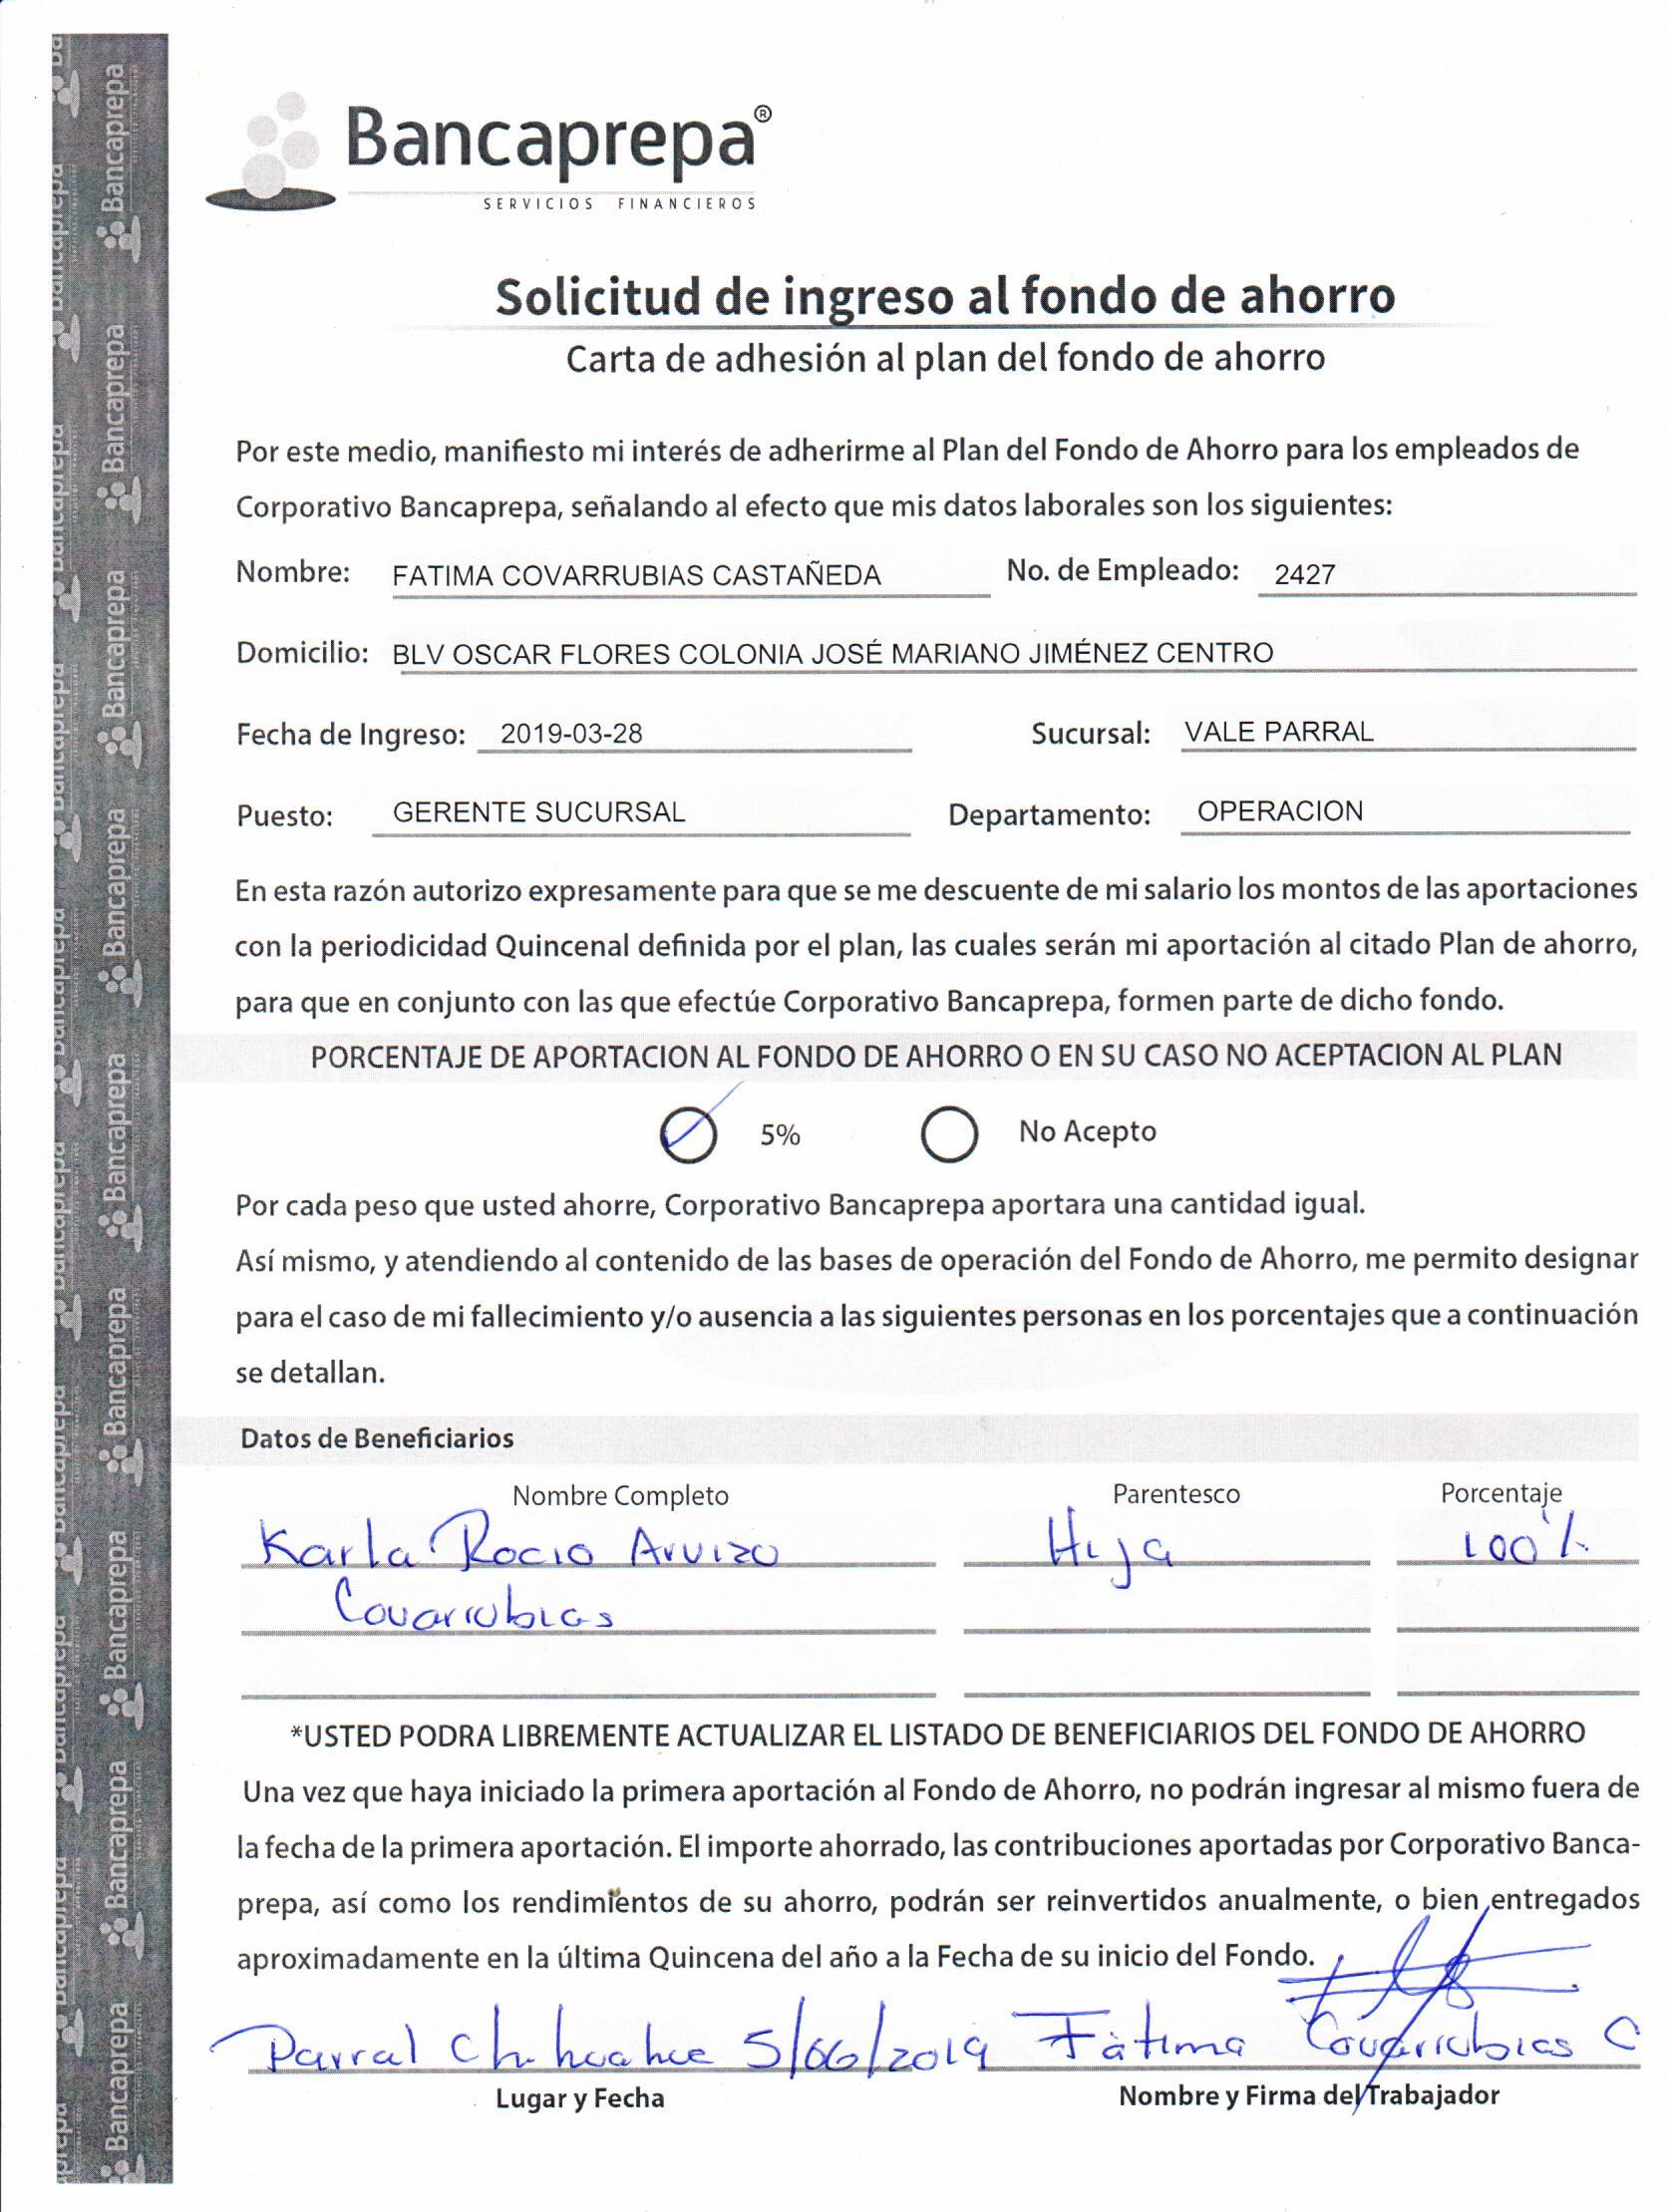 Bancaprepa®
SERVICIOS FINANCIEROS
Solicitud de ingreso al fondo de ahorro
Carta de adhesión al plan del fondo de ahorro
Por este medio, manifiesto mi interés de adherirme al Plan del Fondo de Ahorro para los empleados de
Corporativo Bancaprepa, señalando al efecto que mis datos laborales son los siguientes:
Nombre: FATIMA COVARRUBIAS CASTAÑEDA No. de Empleado: 2427
Domicilio: BLV OSCAR FLORES COLONIA JOSÉ MARIANO JIMÉNEZ CENTRO
Fecha de Ingreso: 2019-03-28 Sucursal: VALE PARRAL
Puesto: GERENTE SUCURSAL Departamento: OPERACION
En esta razón autorizo expresamente para que se me descuente de mi salario los montos de las aportaciones
con la periodicidad Quincenal definida por el plan, las cuales serán mi aportación al citado Plan de ahorro,
para que en conjunto con las que efectúe Corporativo Bancaprepa, formen parte de dicho fondo.
PORCENTAJE DE APORTACION AL FONDO DE AHORRO O EN SU CASO NO ACEPTACION AL PLAN
5% No Acepto
Por cada peso que usted ahorre, Corporativo Bancaprepa aportara una cantidad igual.
Así mismo, y atendiendo al contenido de las bases de operación del Fondo de Ahorro, me permito designar
para el caso de mi fallecimiento y/o ausencia a las siguientes personas en los porcentajes que a continuación
se detallan.
Datos de Beneficiarios
Nombre Completo Parentesco Porcentaje
Karla Rocio Arvizo Hija 100%
Covarrubias
*USTED PODRA LIBREMENTE ACTUALIZAR EL LISTADO DE BENEFICIARIOS DEL FONDO DE AHORRO
Una vez que haya iniciado la primera aportación al Fondo de Ahorro, no podrán ingresar al mismo fuera de
la fecha de la primera aportación. El importe ahorrado, las contribuciones aportadas por Corporativo Banca-
prepa, así como los rendimientos de su ahorro, podrán ser reinvertidos anualmente, o bien entregados
aproximadamente en la última Quincena del año a la Fecha de su inicio del Fondo.
Parral Chihuahua 5/06/2019 Fátima Covarrubias C
Lugar y Fecha Nombre y Firma del Trabajador